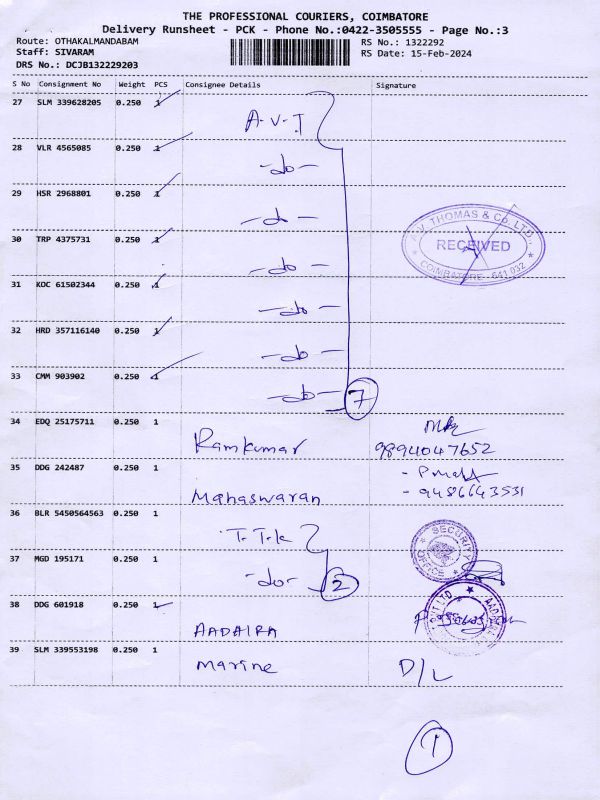 THE PROFESSIONAL COURIERS, COIMBATORE
Delivery Runsheet - PCK - Phone No.:0422-3505555 - Page No.:3
Route: OTHAKALMANDABAM
RS No.: 1322292
Staff: SIVARAM
RS Date: 15-Feb-2024
DRS No.: DCJB132229203
S No Consignment No Weight PCS Consignee Details Signature
27 SLM 339628205 0.250 1 A.V.T
28 VLR 4565085 0.250 1 -do-
29 HSR 2968801 0.250 1 -do-
30 TRP 4375731 0.250 1 -do-
31 KOC 61502344 0.250 1 -do-
32 HRD 357116140 0.250 1 -do-
33 CMM 903902 0.250 1 -do- 7
A.V. THOMAS & Co. LTD.,
RECEIVED
COIMBATORE - 641 032
34 EDQ 25175711 0.250 1 Ramkumar 9894047652
35 DDG 242487 0.250 1 Mahaswaran - 9486643531
36 BLR 5450564563 0.250 1 T.T.K
SECURITY
OFFICE
37 MGD 195171 0.250 1 -do- 2
38 DDG 601918 0.250 1 AADAIRA
PVT LTD
39 SLM 339553198 0.250 1 Marine D/L
1